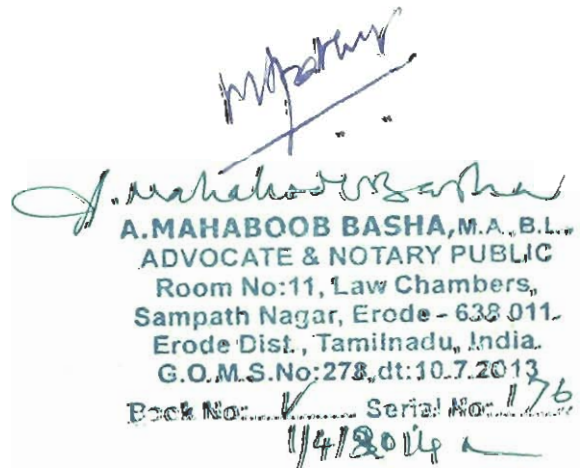 A. Mahaboob Basha
A.MAHABOOB BASHA, M.A., B.L.,
ADVOCATE & NOTARY PUBLIC
Room No:11, Law Chambers,
Sampath Nagar, Erode - 638 011.
Erode Dist., Tamilnadu, India.
G.O.M.S.No:278, dt:10.7.2013
Book No: V Serial No: 176
1/4/2014